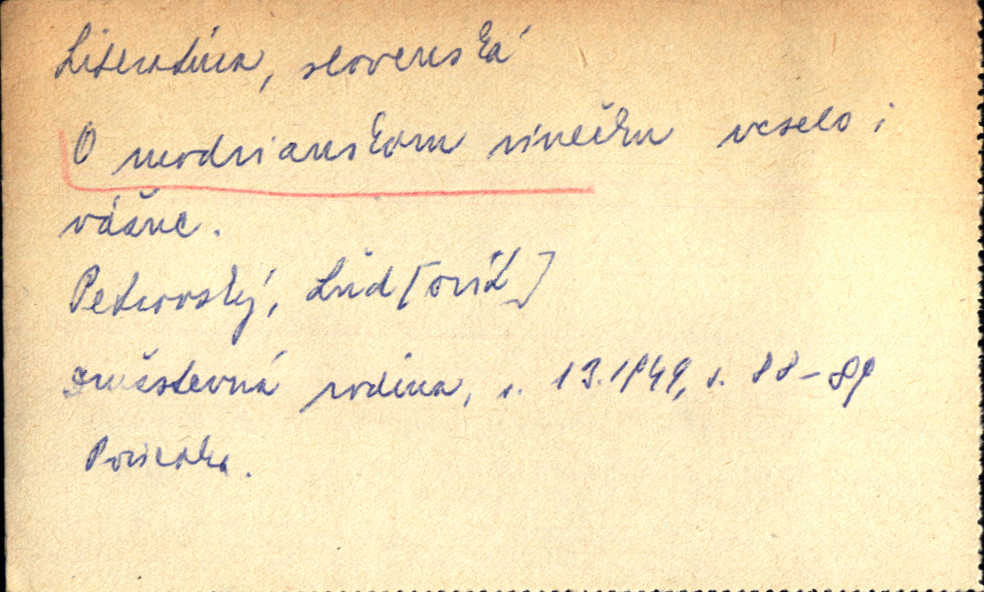 Literatúra, slovenská
O modrianskom vínečku veselo i
vážne.
Petrovský, Ľud[ovít]
r. 13.1949, s. 88-89
Poviedka.